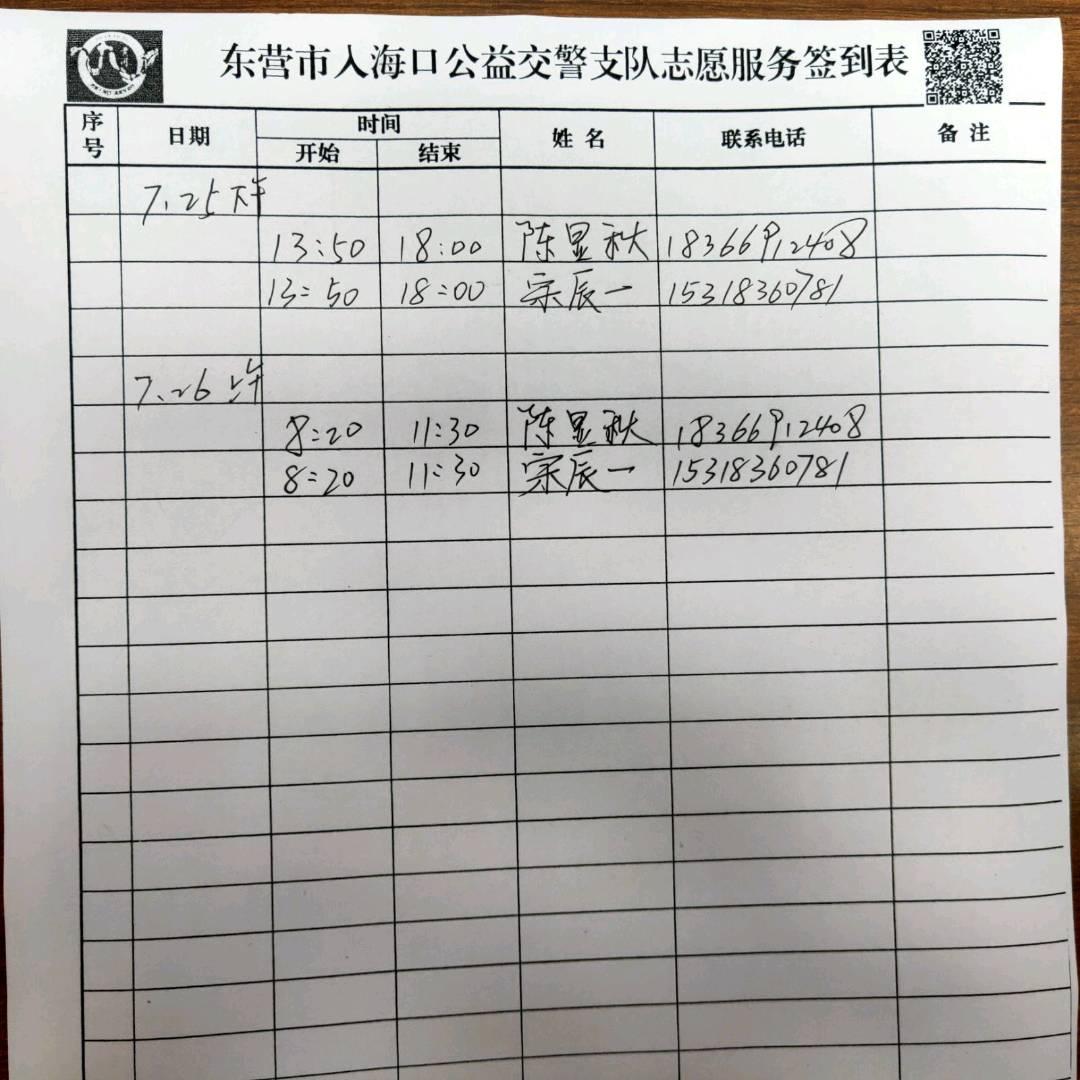 东营市入海口公益交警支队志愿服务签到表
序号 日期 时间 开始 结束 姓名 联系电话 备注
7.25 下午
13:50 18:00 陈显秋 18366912408
13:50 18:00 宗辰一 15318360781
7.26 上午
8:20 11:30 陈显秋 18366912408
8:20 11:30 宗辰一 15318360781